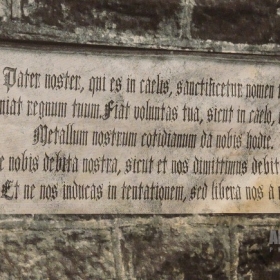 Pater noster, qui es in caelis, sanctificetur nomen
niat regnum tuum. Fiat voluntas tua, sicut in caelo,
Metallum nostrum cotidianum da nobis hodie.
nobis debita nostra, sicut et nos dimittimus debit
Et ne nos inducas in tentationem, sed libera nos a